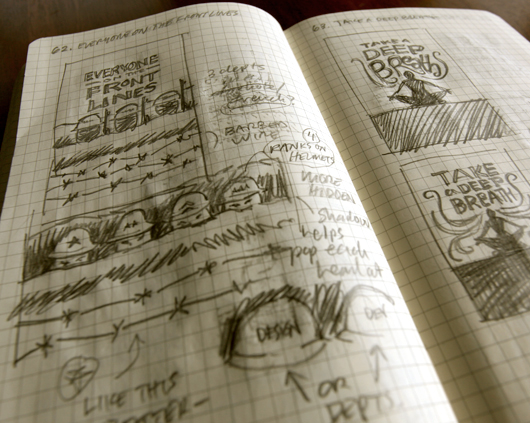 62. EVERYONE ON THE FRONT LINES.
EVERYONE
ON THE
FRONT
LINES
BARBED
WIRE
(4)
RANKS ON
HELMETS
MORE
HIDDEN
Shadow
helps
pop each
DESIGN
DEV
LIKE THIS
OR
DEPTS.
63. TAKE A DEEP BREATH
TAKE A
DEEP
Breath
TAKE
A DEEP
BREATH